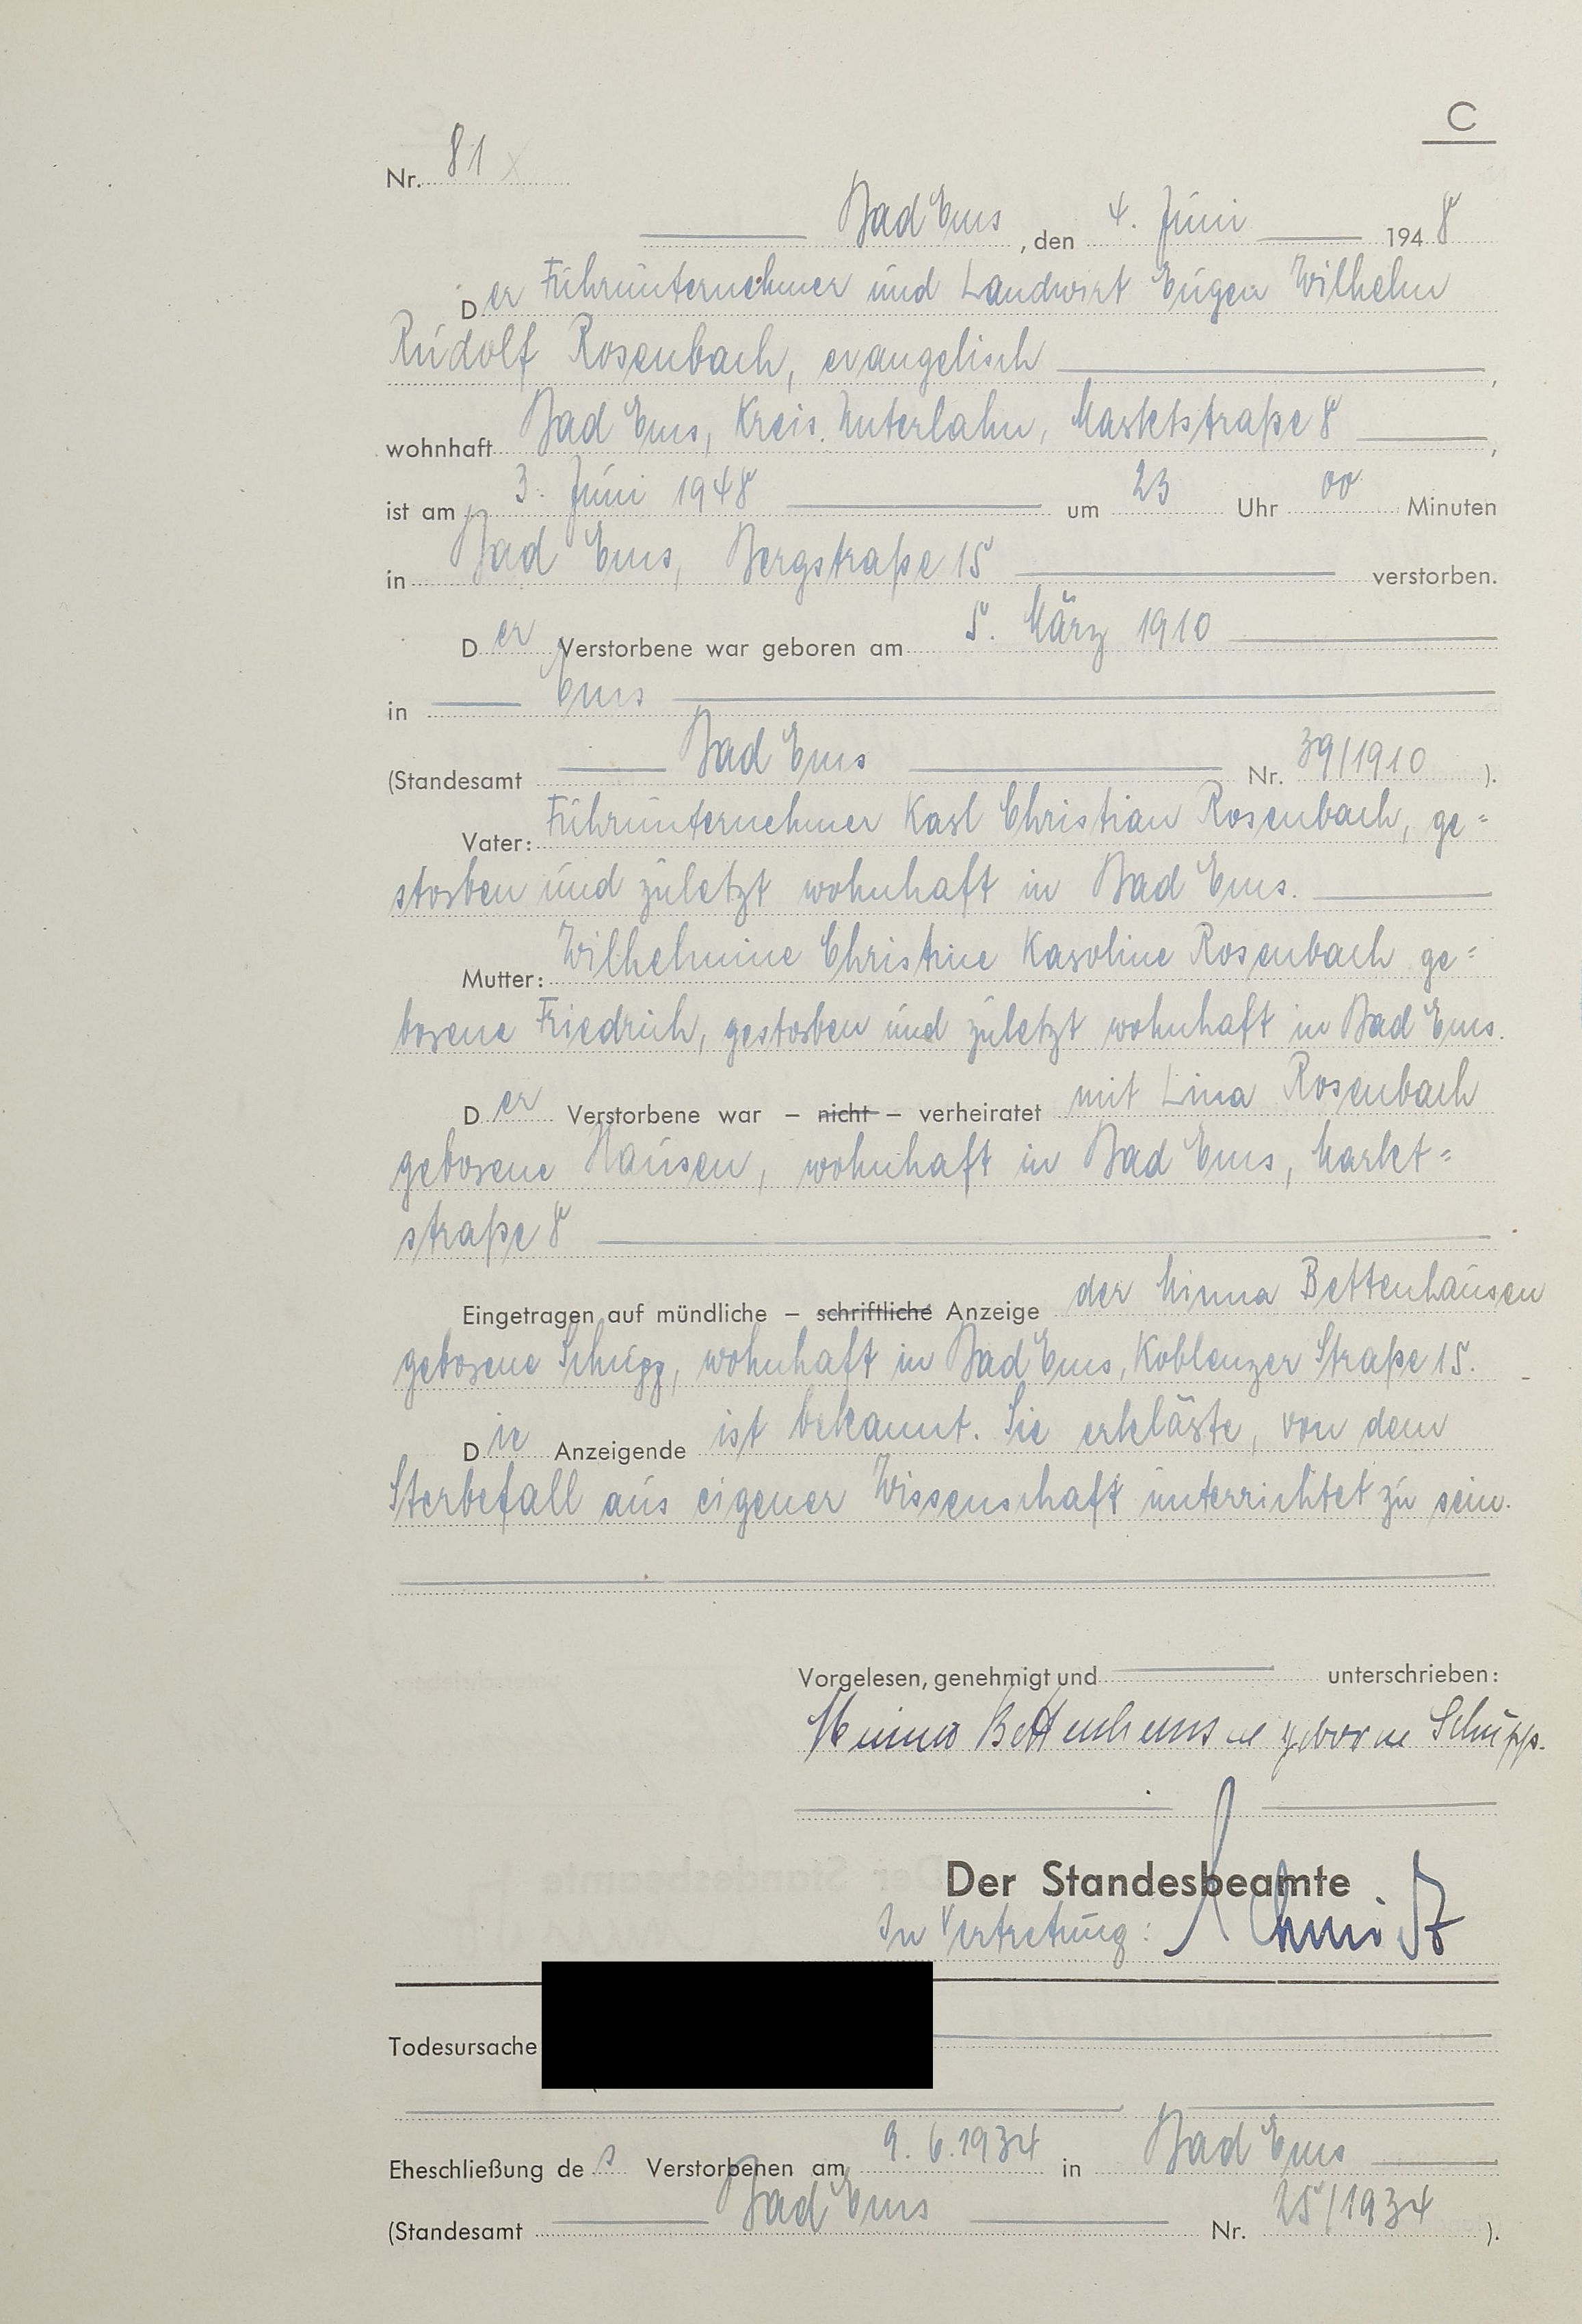 C
Nr. 81
Bad Ems, den 4. Juni 1948
Der Fuhrunternehmer und Landwirt Eugen Wilhelm
Rudolf Rosenbach, evangelisch,
wohnhaft Bad Ems, Kreis Unterlahn, Marktstraße 8,
ist am 3. Juni 1948 um 23 Uhr 00 Minuten
in Bad Ems, Bergstraße 15 verstorben.
Der Verstorbene war geboren am 5. März 1910
in Ems
(Standesamt Bad Ems Nr. 39/1910).
Vater: Fuhrunternehmer Karl Christian Rosenbach, ge=
storben und zuletzt wohnhaft in Bad Ems.
Mutter: Wilhelmine Christine Karoline Rosenbach ge=
borene Friedrich, gestorben und zuletzt wohnhaft in Bad Ems.
Der Verstorbene war – nicht – verheiratet mit Lina Rosenbach
geborene Hausen, wohnhaft in Bad Ems, Markt=
straße 8
Eingetragen auf mündliche – schriftliche Anzeige der Minna Bettenhausen
geborene Schupp, wohnhaft in Bad Ems, Koblenzer Straße 15.
Die Anzeigende ist bekannt. Sie erklärte, von dem
Sterbefall aus eigener Wissenschaft unterrichtet zu sein.
Vorgelesen, genehmigt und unterschrieben:
Minna Bettenhausen geborne Schupp.
Der Standesbeamte
In Vertretung: Schmidt
Todesursache
Eheschließung des Verstorbenen am 9.6.1934 in Bad Ems
(Standesamt Bad Ems Nr. 25/1934).